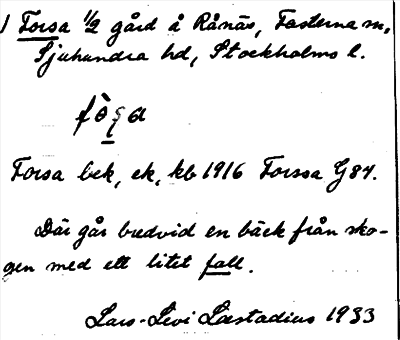 1 Forsa 1/2 gård å Rånäs, Fasterna sn,
Sjuhundra hd, Stockholms l.
Forsa bek, ek, kb 1916 Forssa G84.
Där går bredvid en bäck från sko-
gen med ett litet fall.
Lars-Levi Læstadius 1933